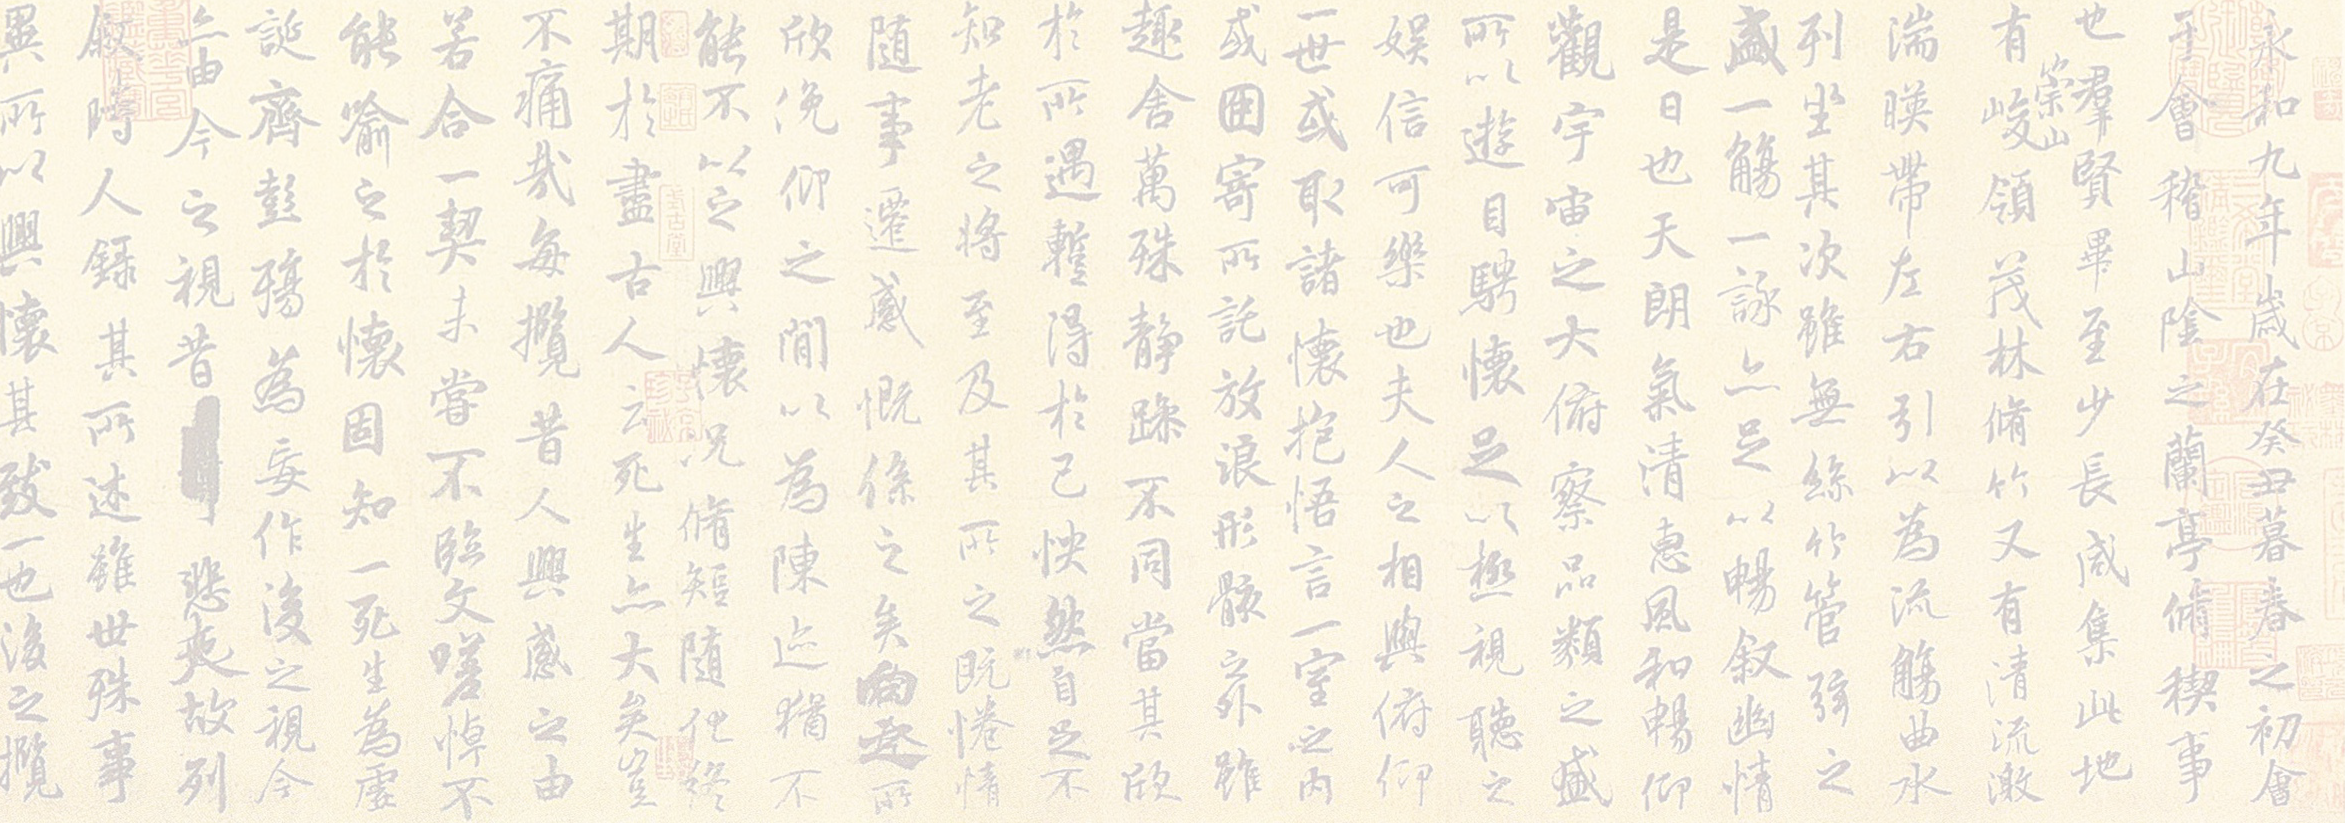 永和九年歲在癸丑暮春之初會
于會稽山陰之蘭亭脩稧事
也羣賢畢至少長咸集此地
有崇山峻領茂林脩竹又有清流激
湍暎帶左右引以為流觴曲水
列坐其次雖無絲竹管弦之
盛一觴一詠亦足以暢叙幽情
是日也天朗氣清惠風和暢仰
觀宇宙之大俯察品類之盛
所以遊目騁懷足以極視聽之
娛信可樂也夫人之相與俯仰
一世或取諸懷抱悟言一室之內
或因寄所託放浪形骸之外雖
趣舍萬殊静躁不同當其欣
於所遇暫得於己怏然自足不
知老之將至及其所之既惓情
随事遷感慨係之矣向之所
欣俛仰之間以為陳迹猶不
能不以之興懷況脩短随化終
期於盡古人云死生亦大矣豈
不痛哉每攬昔人興感之由
若合一契未嘗不臨文嗟悼不
能喻之於懷固知一死生為虛
誕齊彭殤為妄作後之視今
亦由今之視昔悲夫故列
叙時人錄其所述雖世殊事
異所以興懷其致一也後之攬